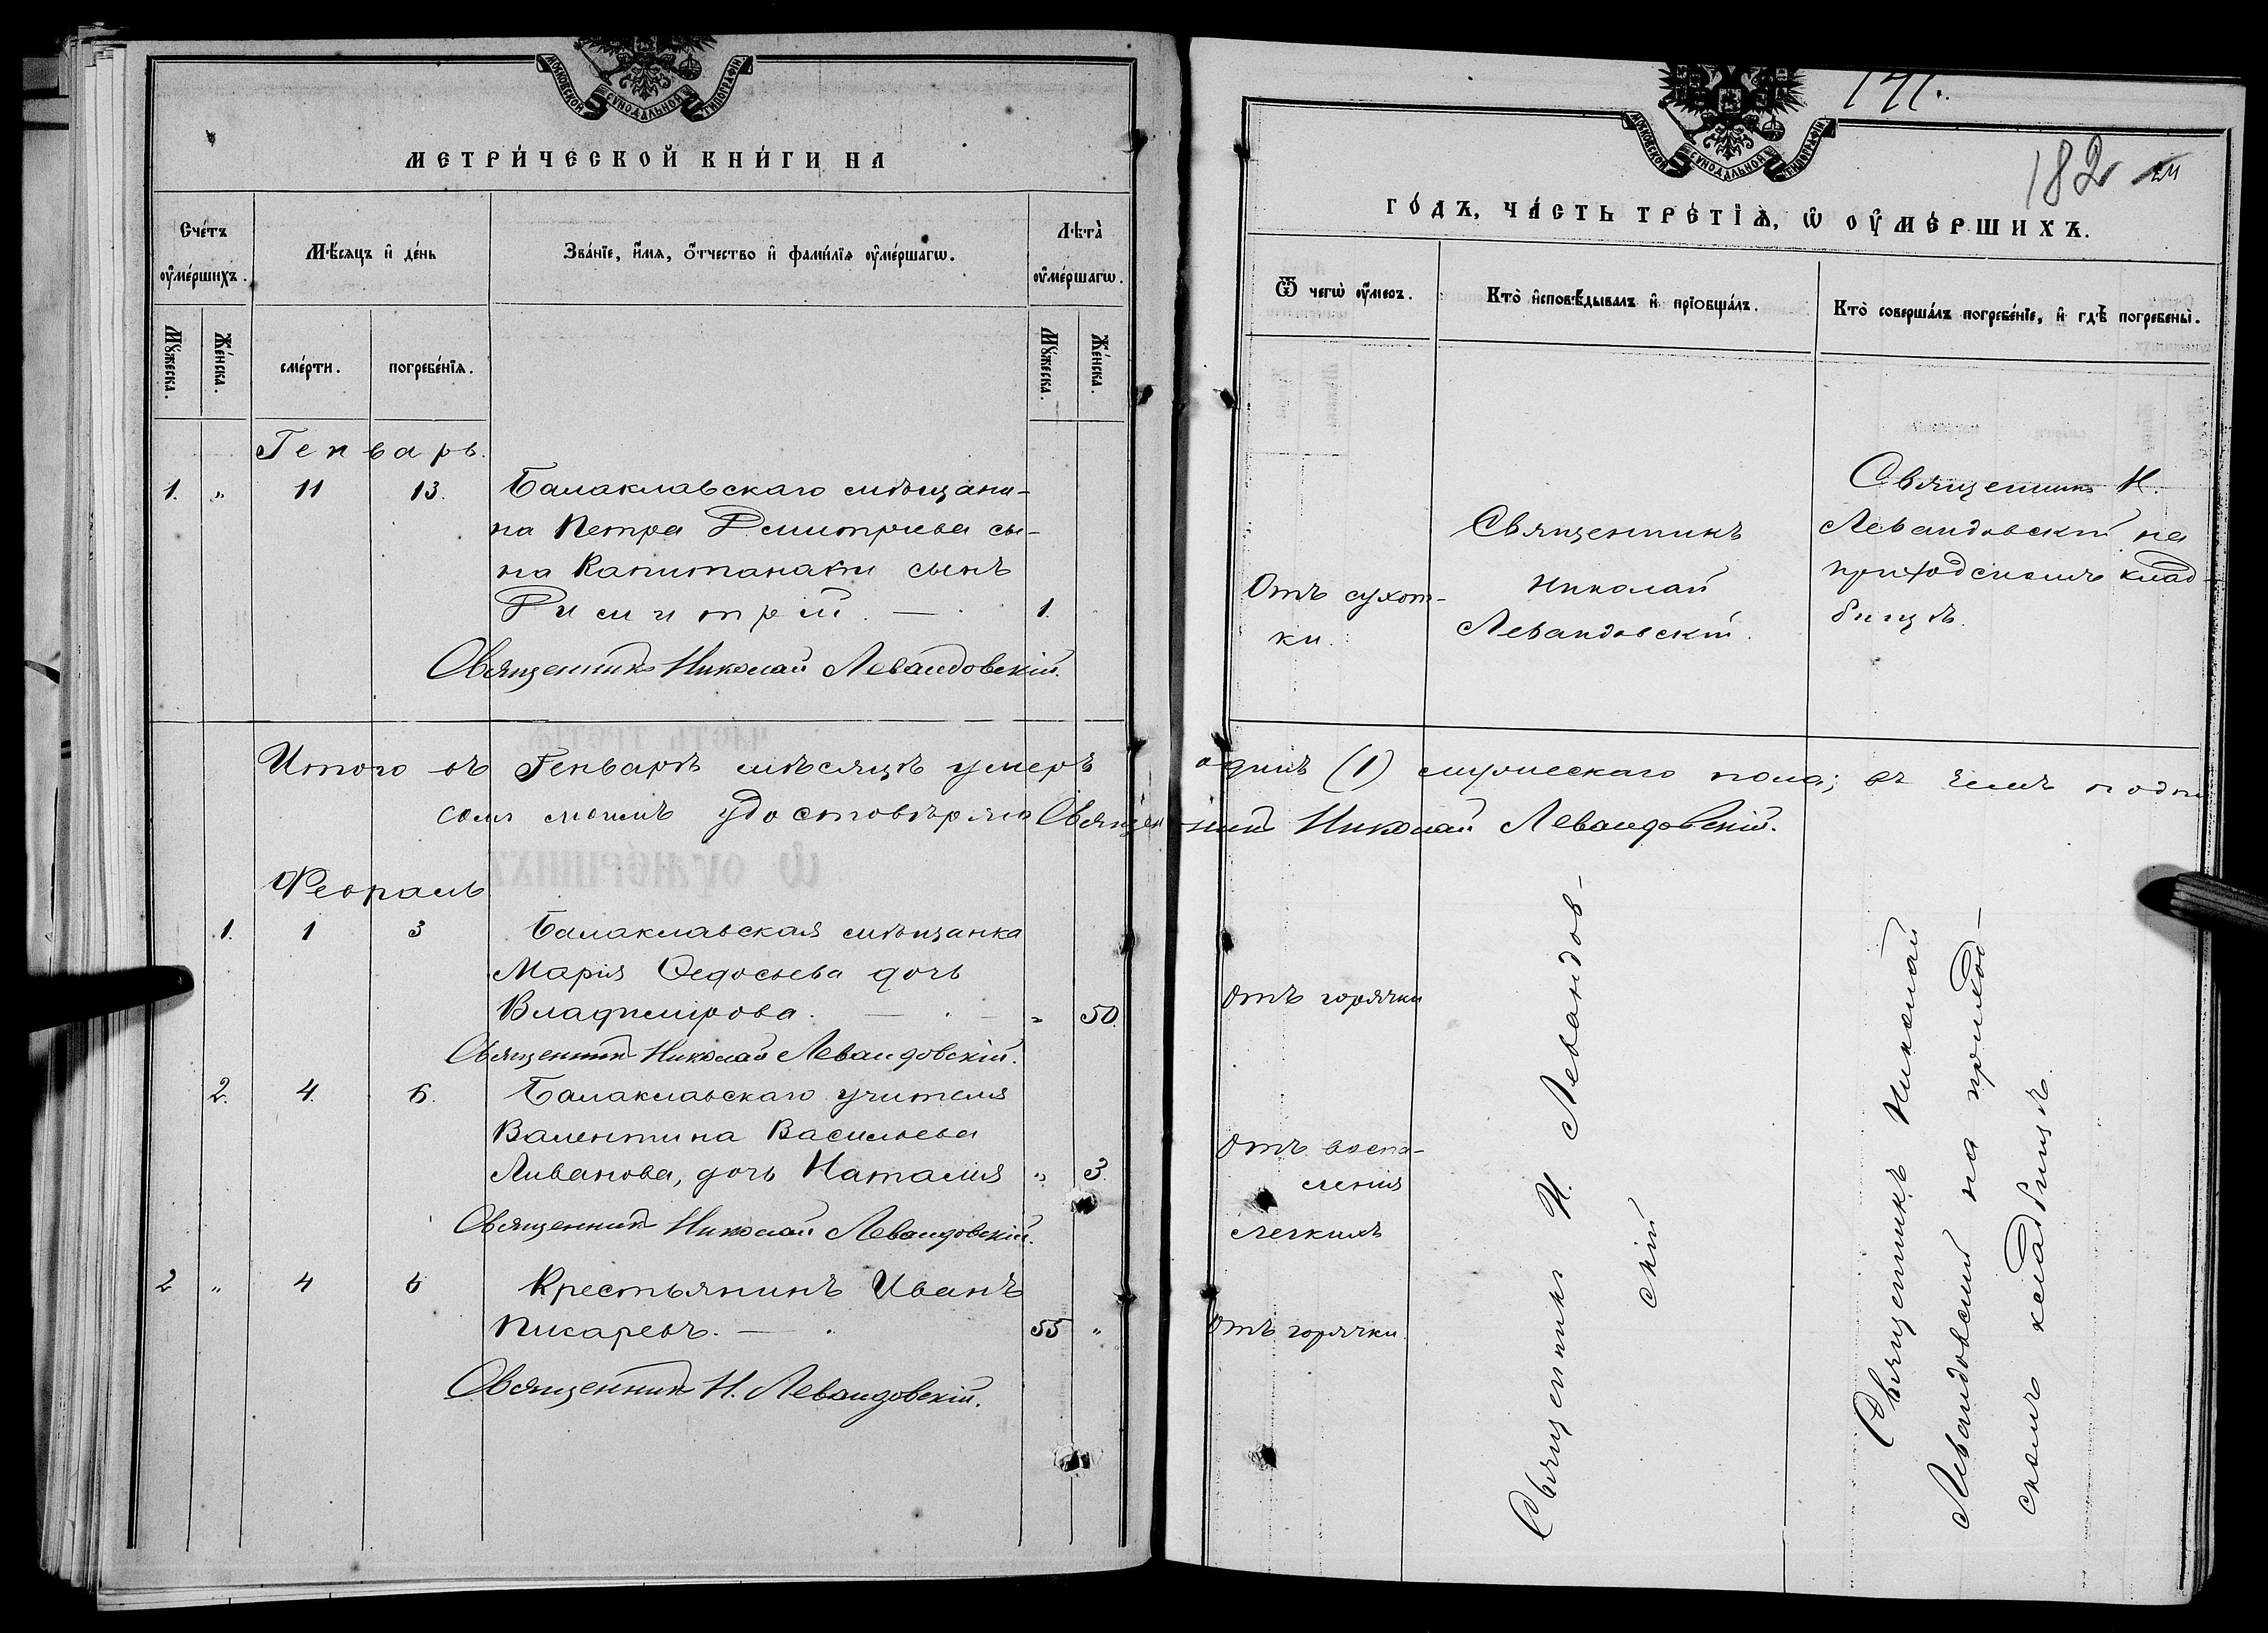 МОСКОВСКОЙ СѴНОДАЛЬНОЙ ТИПОГРАФІИ
МЕТРИ́ЧЕСКОЙ КНИ́ГИ НА
Сче́тъ ᲂу҆ме́ршихъ.
Мѣ́сяцъ и҆ де́нь
Зва́нїе, и҆́мя, ѻ҆́тчество и҆ фами́лїя ᲂу҆ме́ршагѡ.
Лѣта̀ ᲂу҆ме́ршагѡ.
Мꙋ́жеска.
Же́нска.
сме́рти.
погребе́нїя.
Мꙋ́жеска.
Же́нска.
Генварь.
1. „ 11 13. Балаклавскаго мѣщани-
на Петра Дмитриева сы-
на Капитанаки сынъ
Димитрій. — 1.
Священникъ Николай Левандовскій.
Итого въ Генварѣ мѣсяцѣ умеръ
симъ моимъ удостовѣряю Священ-
Февраль
1. 1 3 Балаклавская мѣщанка
Марія Ѳедосьева дочь
Владимірова. — „ 50.
Священникъ Николай Левандовскій.
2. 4. 6. Балаклавскаго учителя
Валентина Васильева
Ливанова, дочь Наталия „ 3.
Священникъ Николай Левандовскій.
2 „ 4 6 Крестьянинъ Иванъ
Писаревъ. — 55 „
Священникъ Н. Левандовскій.
МОСКОВСКОЙ СѴНОДАЛЬНОЙ ТИПОГРАФІИ
182
ГО́ДЪ, ЧА́СТЬ ТРЕ́ТЇѦ, Ѡ҆ ОУ҆МЕ́РШИХЪ.
Ѿ чегѡ̀ ᲂу҆́меръ.
Кто̀ и҆сповѣ́дывалъ и҆ прїобща́лъ.
Кто̀ соверша́лъ погребе́нїе, и҆ гдѣ̀ погребены̀.
Отъ сухот-
ки.
Священникъ
Николай
Левандовскій.
Священникъ Н.
Левандовскій на
приходскомъ клад-
бищѣ.
одинъ (1) мужескаго пола; въ чемъ подпи
никъ Николай Левандовскій.
Отъ горячки
Отъ воспа-
ленія
легкихъ
Отъ горячки.
Священникъ Н. Левандов-
скій
Священникъ Николай
Левандовскій на приход-
скомъ кладбищѣ.